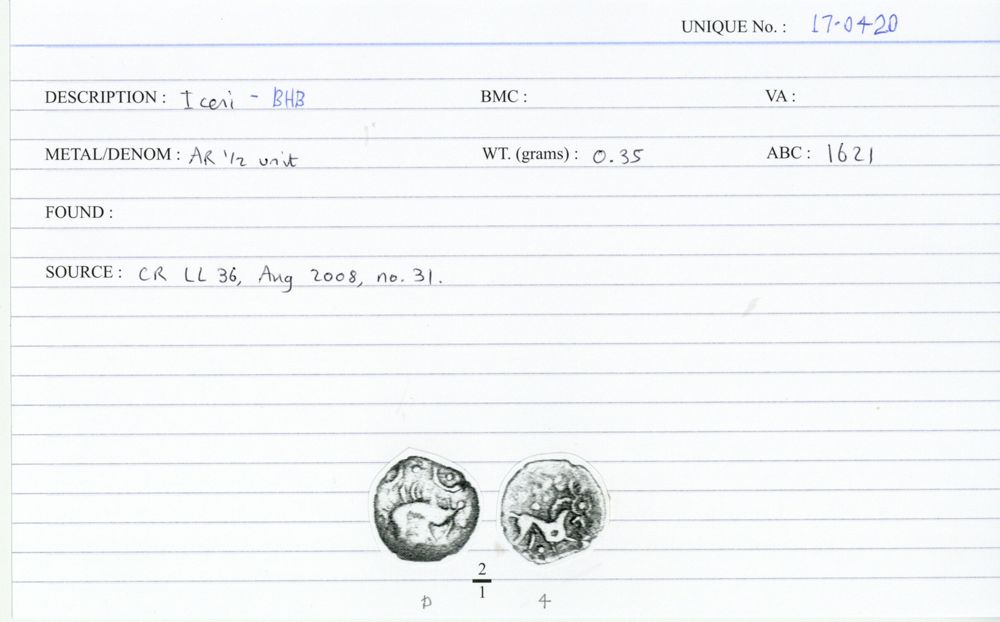 UNIQUE No. : 17-0420
DESCRIPTION : Iceni - BHB BMC : VA :
METAL/DENOM : AR 1/2 unit WT. (grams) : 0.35 ABC : 1621
FOUND :
SOURCE : CR LL 36, Aug 2008, no. 31.
2
1
D 4